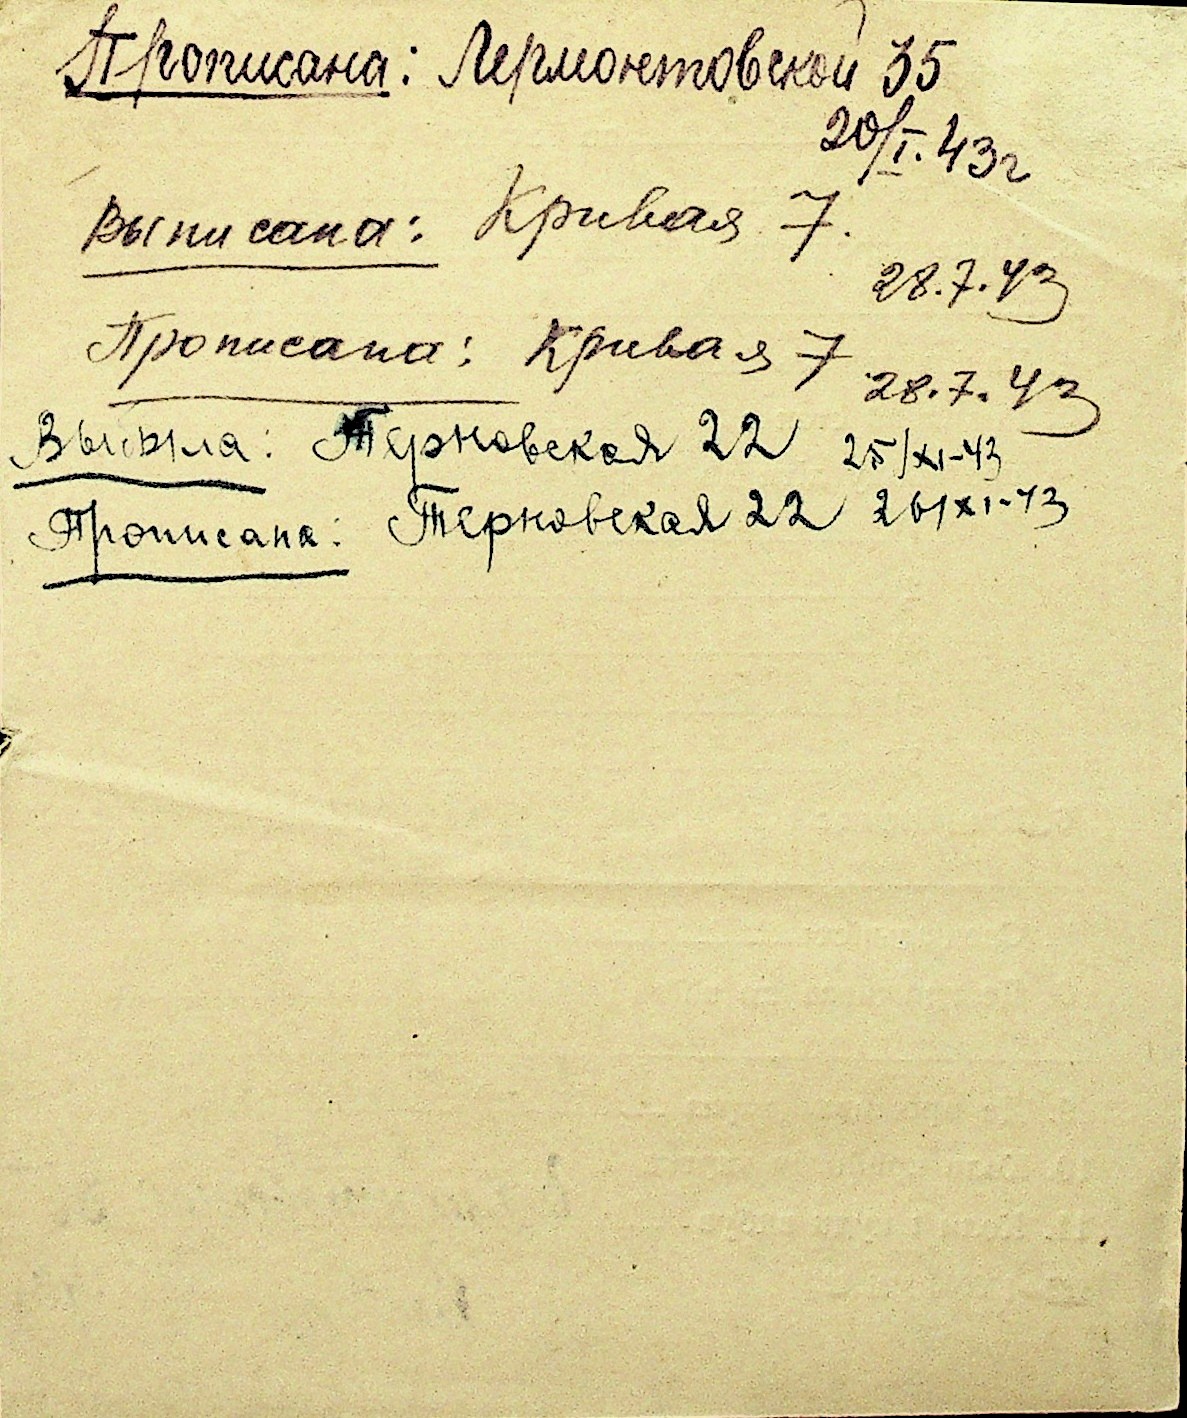 Прописана: Лермонтовской 35
20/I. 43г
Выписана: Кривая 7.
28.7.43
Прописана: Кривая 7
28.7.43
Выбыла: Терновская 22 25/XI-43
Прописана: Терновская 22 26/XI-43